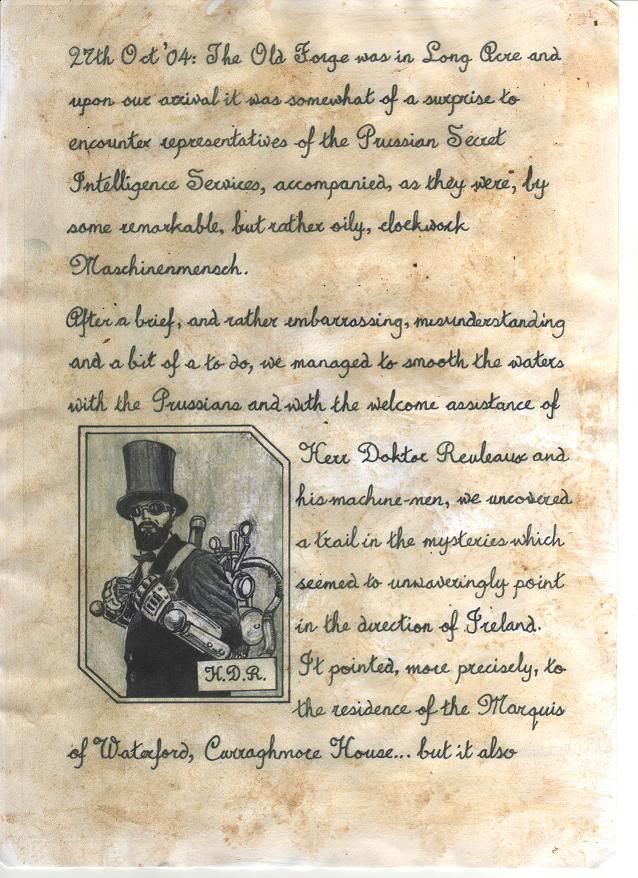 27th Oct '04: The Old Forge was in Long Acre and
upon our arrival it was somewhat of a surprise to
encounter representatives of the Prussian Secret
Intelligence Services, accompanied, as they were, by
some remarkable, but rather oily, clockwork
Maschinenmensch.
After a brief, and rather embarrassing, misunderstanding
and a bit of a to do, we managed to smooth the waters
with the Prussians and with the welcome assistance of
Herr Doktor Reuleaux and
his machine-men, we uncovered
a trail in the mysteries which
seemed to unwaveringly point
in the direction of Ireland.
It pointed, more precisely, to
the residence of the Marquis
H.D.R.
of Waterford, Curraghmore House... but it also